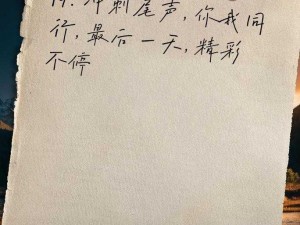 冲刺尾声,你我同
行,最后一天,精彩
不停